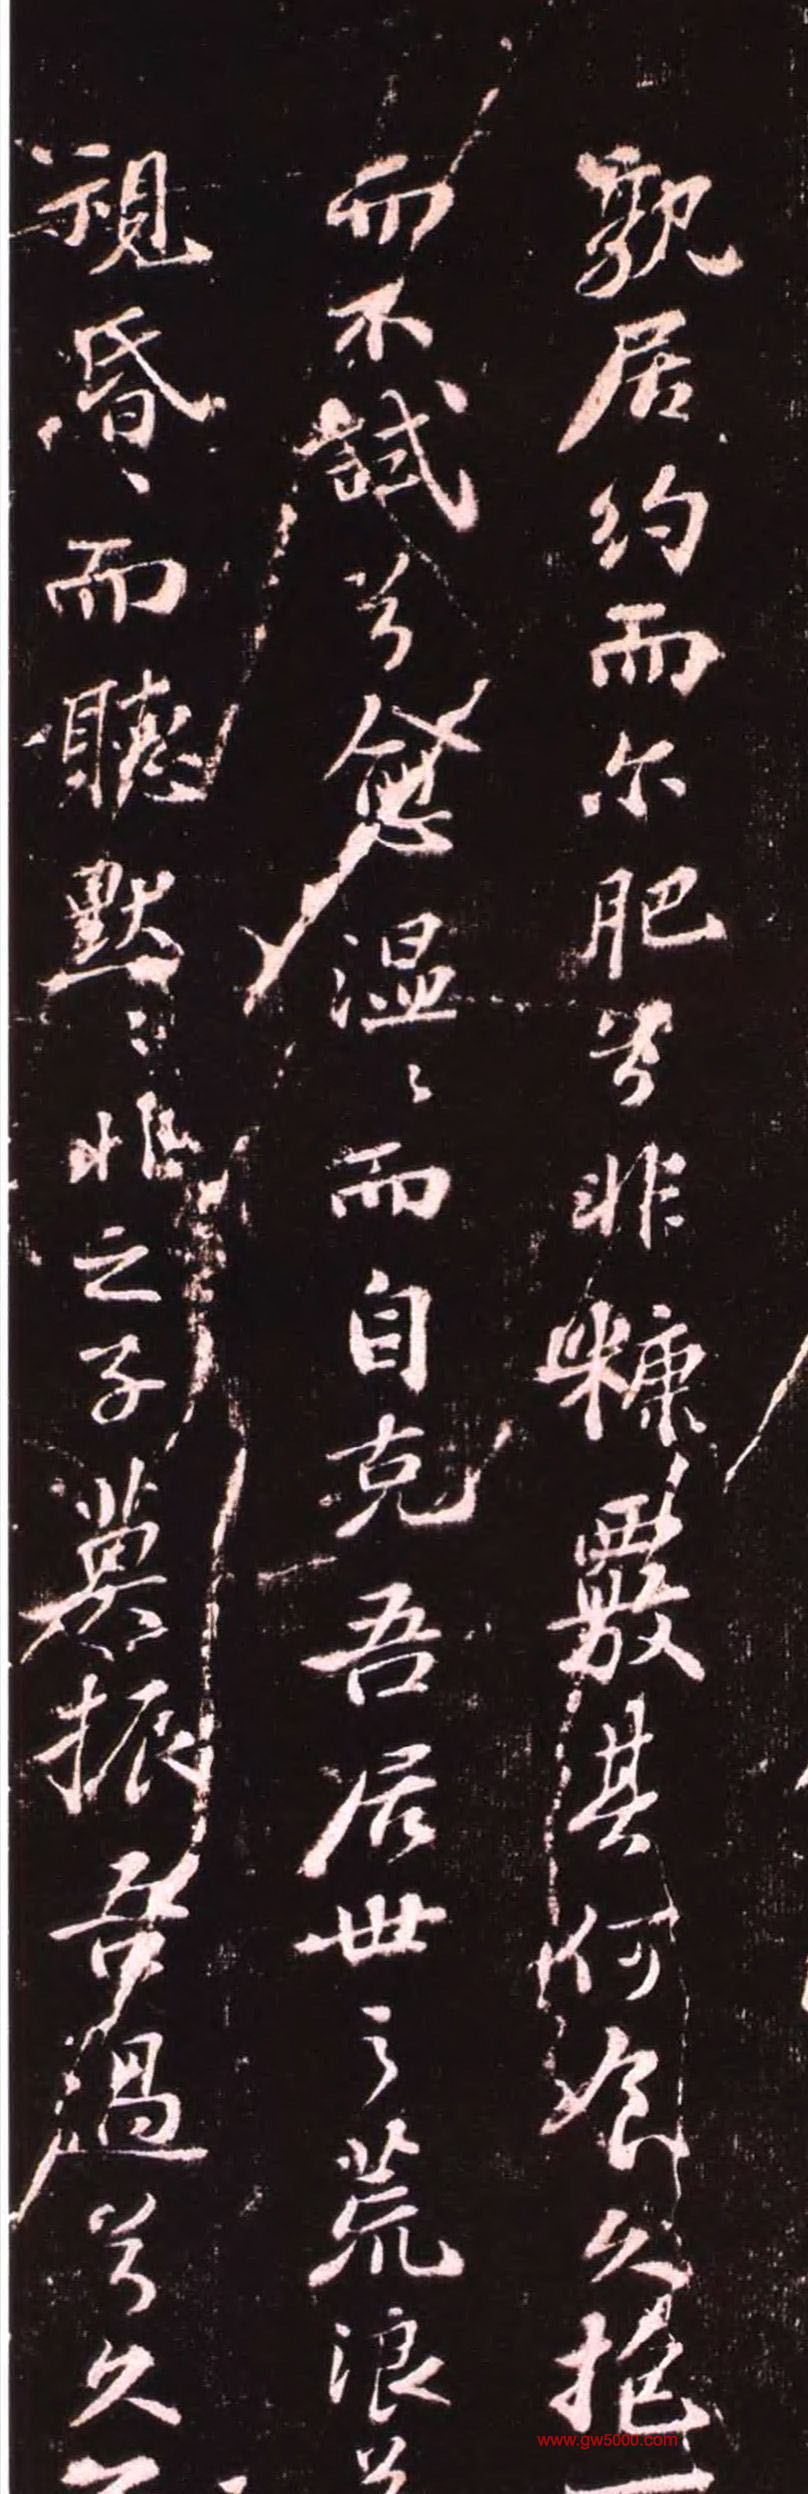 孰居約而尔肥兮非糠覈其何食久抱一
而不試兮愈温〻而自克吾居世之荒浪兮
視昏〻而聽默〻非之子莫振吾過兮久不
www.gw5000.com